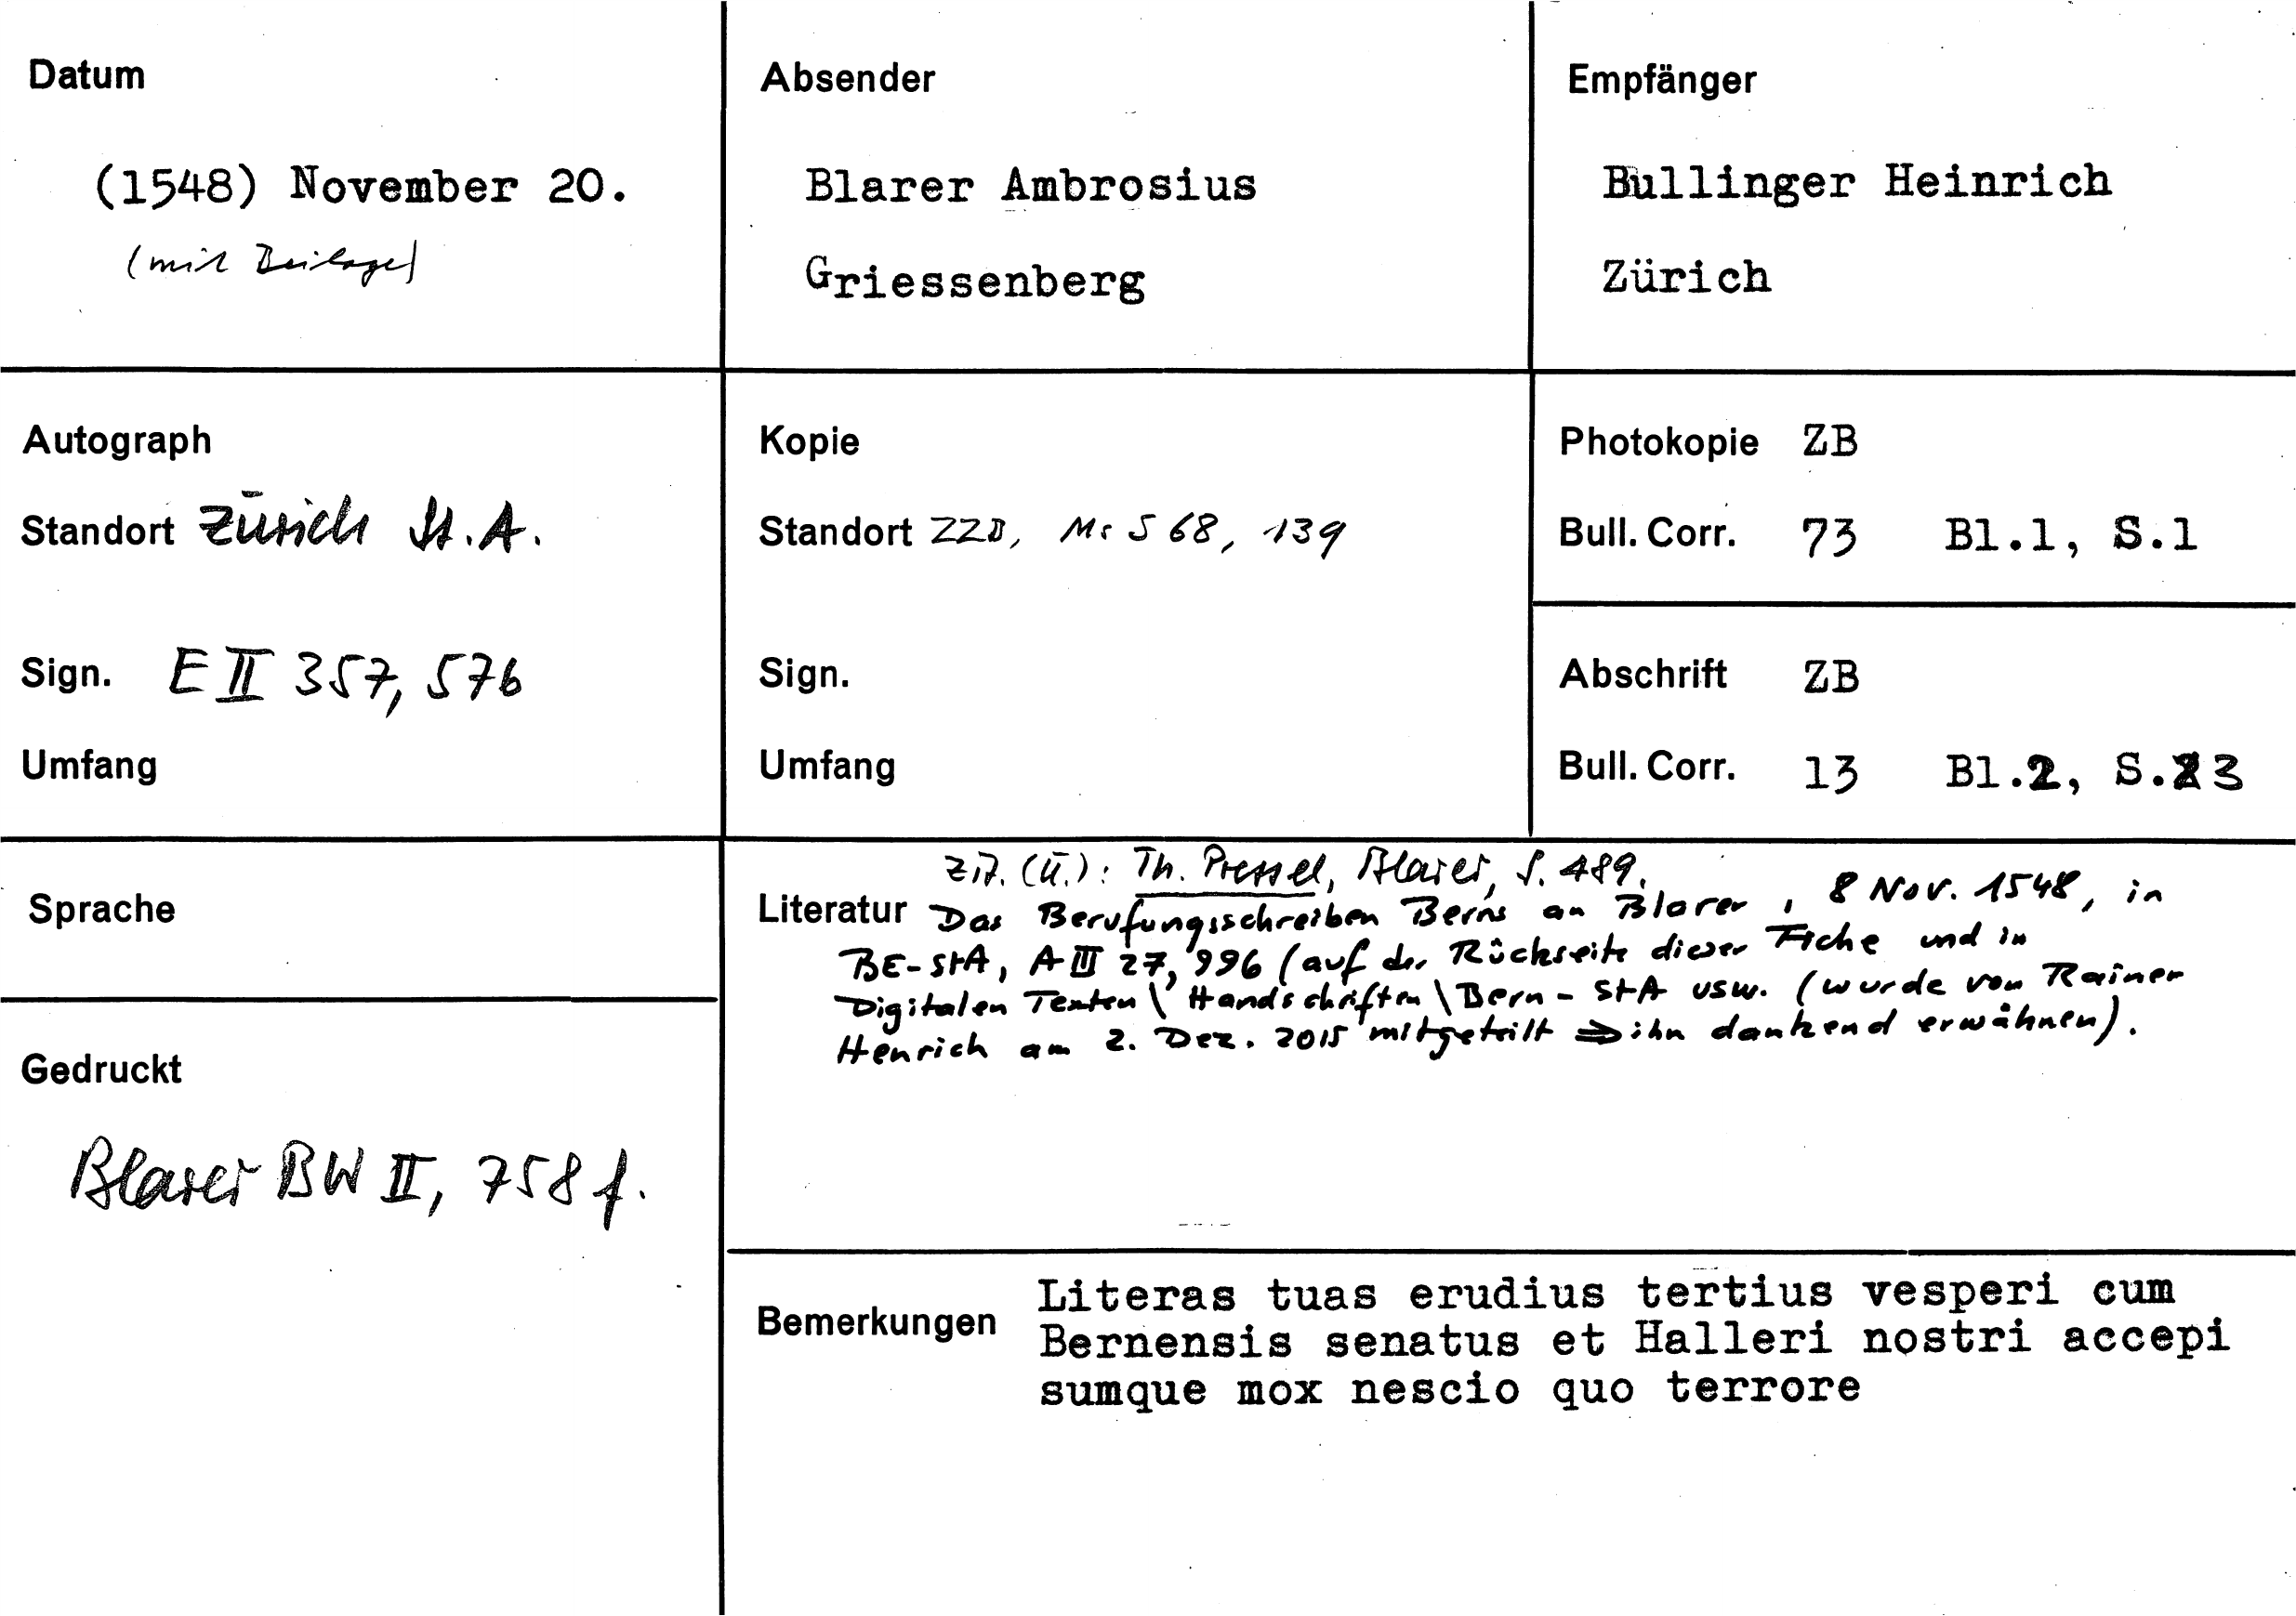 Datum
(1548) November 20.
(mit Beilage)
Absender
Blarer Ambrosius
Griessenberg
Empfänger
Bullinger Heinrich
Zürich
Autograph
Standort Zürich St.A.
Sign. E II 357, 576
Umfang
Kopie
Standort ZZB, Ms S 68, 139
Sign.
Umfang
Photokopie ZB
Bull. Corr. 73 Bl.1, S.1
Abschrift ZB
Bull. Corr. 13 Bl.2, S.23
Sprache
Gedruckt
Blarer BW II, 758 f.
Zit. (Ü.): Th. Pressel, Blarer, S. 489.
Literatur Das Berufungsschreiben Berns an Blarer, 8 Nov. 1548, in
BE-StA, A III 27, 996 (auf der Rückseite dieser Fiche und in
Digitalen Texten \ Handschriften \ Bern - StA usw. (wurde von Rainer
Henrich am 2. Dez. 2015 mitgeteilt ⇒ ihn dankend erwähnen).
Bemerkungen Literas tuas erudius tertius vesperi cum
Bernensis senatus et Halleri nostri accepi
sumque mox nescio quo terrore